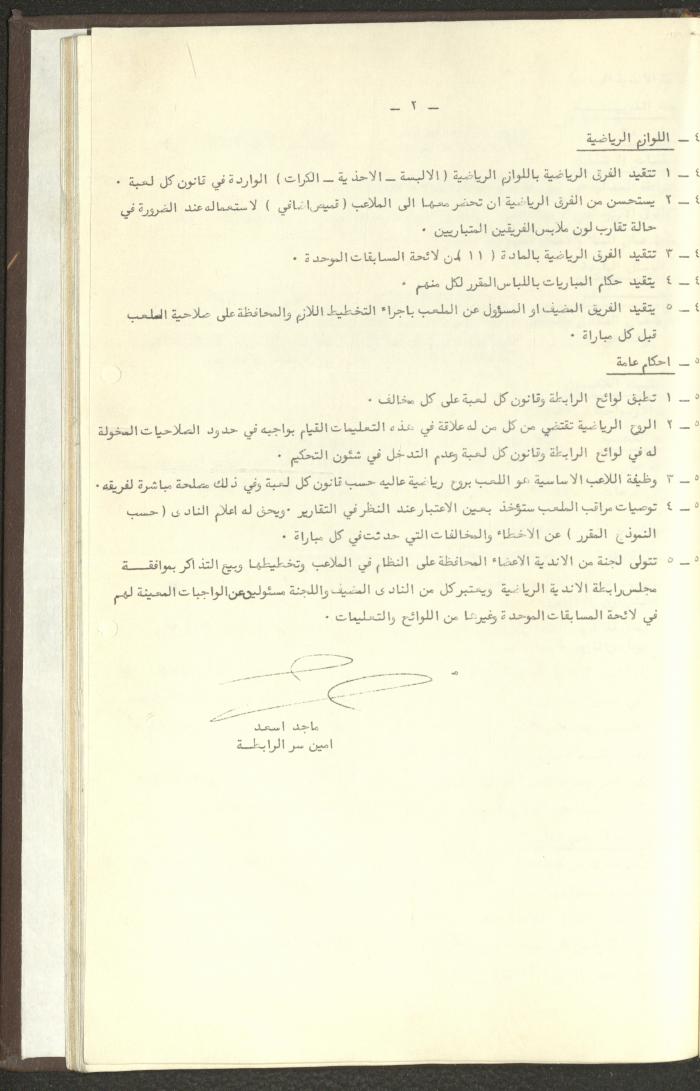 - ٢ -
٤ - اللوازم الرياضية
٤ - ١ تتقيد الفرق الرياضية باللوازم الرياضية (الالبسة - الاحذية - الكرات) الواردة في قانون كل لعبة ٠
٤ - ٢ يستحسن من الفرق الرياضية ان تحضر معها الى الملاعب (قميص اضافي) لاستعماله عند الضرورة في
حالة تقارب لون ملابس الفريقين المتباريين ٠
٤ - ٣ تتقيد الفرق الرياضية بالمادة (١١) من لائحة المسابقات الموحدة ٠
٤ - ٤ يتقيد حكام المباريات باللباس المقرر لكل منهم ٠
٤ - ٥ يتقيد الفريق المضيف او المسؤول عن الملعب باجراء التخطيط اللازم والمحافظة على صلاحية الملعب
قبل كل مباراة ٠
٥ - احكام عامة
٥ - ١ تطبق لوائح الرابطة وقانون كل لعبة على كل مخالف ٠
٥ - ٢ الروح الرياضية تقتضي من كل من له علاقة في هذه التعليمات القيام بواجبه في حدود الصلاحيات المخولة
له في لوائح الرابطة وقانون كل لعبة وعدم التدخل في شئون التحكيم ٠
٥ - ٣ وظيفة اللاعب الاساسية هو اللعب بروح رياضية عاليه حسب قانون كل لعبة وفي ذلك مصلحة مباشرة لفريقه٠
٥ - ٤ توصيات مراقب الملعب ستؤخذ بعين الاعتبار عند النظر في التقارير ٠ويحق له اعلام النادى (حسب
النموذج المقرر) عن الاخطاء والمخالفات التي حدثت في كل مباراة ٠
٥ - ٥ تتولى لجنة من الاندية الاعضاء المحافظة على النظام في الملاعب وتخطيطها وبيع التذاكر بموافقـــة
مجلس رابطة الاندية الرياضية ويعتبر كل من النادى المضيف واللجنة مسئولين عن الواجبات المعينة لهم
في لائحة المسابقات الموحدة وغيرها من اللوائح والتعليمات ٠
ماجد اسعد
امين سر الرابطـة